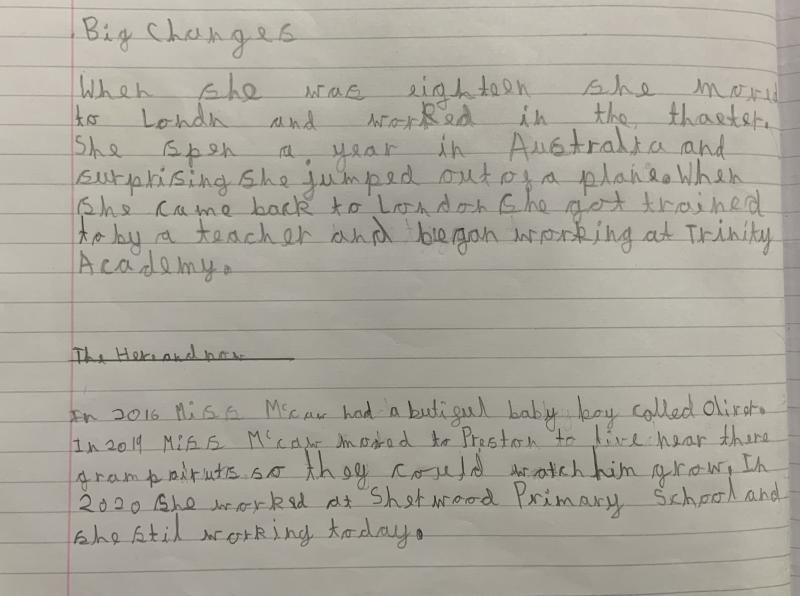 Big Changes
When she was eighteen she moved
to Londn and worked in the thaeter.
She spen a year in Australia and
surprising she jumped out of a plane. When
she came back to London she got trained
to by a teacher and began working at Trinity
Academy.
The Here and now
In 2016 Miss Mccaw had a butiful baby boy called Oliver.
In 2019 Miss Mccaw moved to Preston to live near there
grampairuts so they could watch him grow. In
2020 she worked at Sherwood Primary School and
she stil working today.